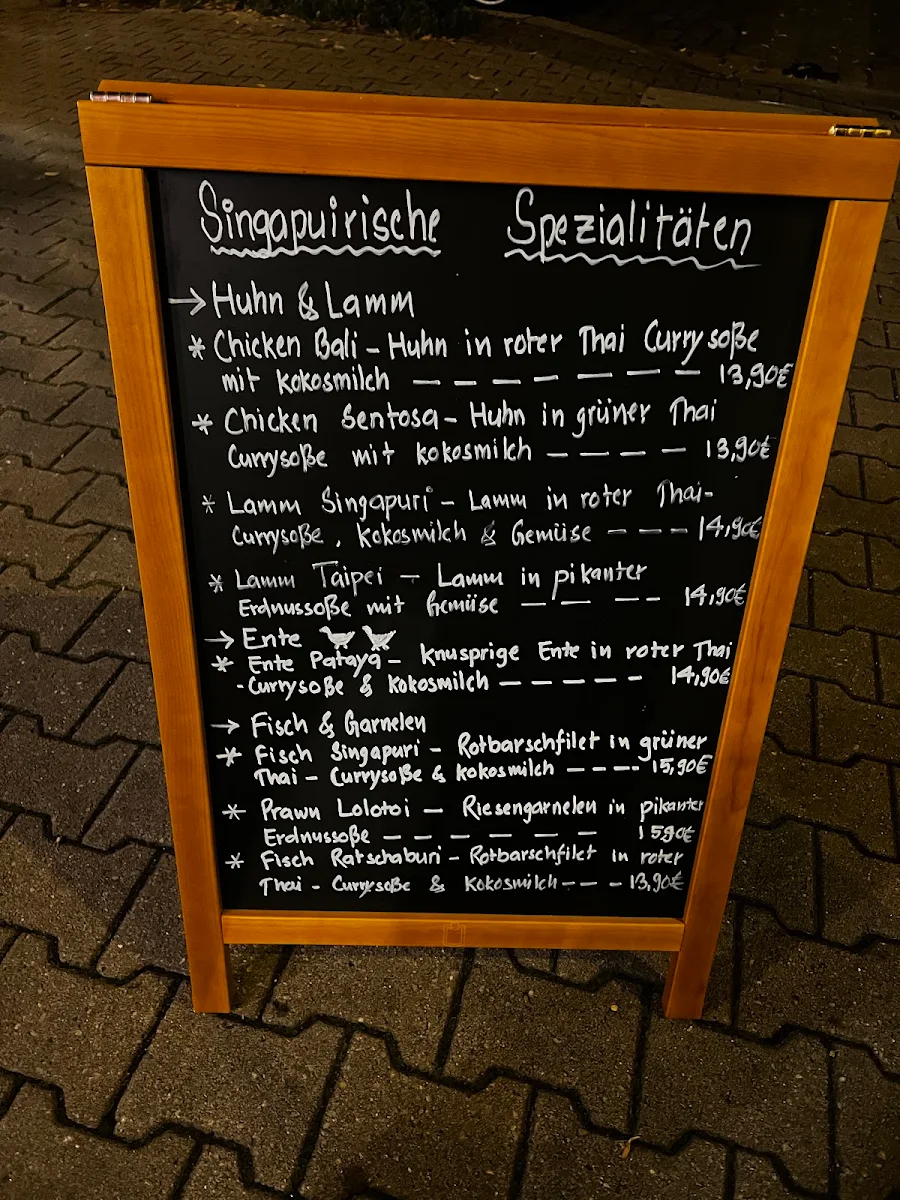 Singapuirische Spezialitäten
→ Huhn & Lamm
* Chicken Bali – Huhn in roter Thai Currysoße
mit Kokosmilch — — — — — — — — 13,90€
* Chicken Sentosa – Huhn in grüner Thai
Currysoße mit Kokosmilch — — — — 13,90€
* Lamm Singapuri – Lamm in roter Thai-
Currysoße, Kokosmilch & Gemüse — — — 14,90€
* Lamm Taipei – Lamm in pikanter
Erdnussoße mit Gemüse — — — — 14,90€
→ Ente
* Ente Pataya – Knusprige Ente in roter Thai
-Currysoße & Kokosmilch — — — — — 14,90€
→ Fisch & Garnelen
* Fisch Singapuri – Rotbarschfilet in grüner
Thai – Currysoße & Kokosmilch — — — - 15,90€
* Prawn Lolotoi — Riesengarnelen in pikanter
Erdnussoße — — — — — — 15,90€
* Fisch Ratschaburi – Rotbarschfilet in roter
Thai – Currysoße & Kokosmilch – – – 13,90€